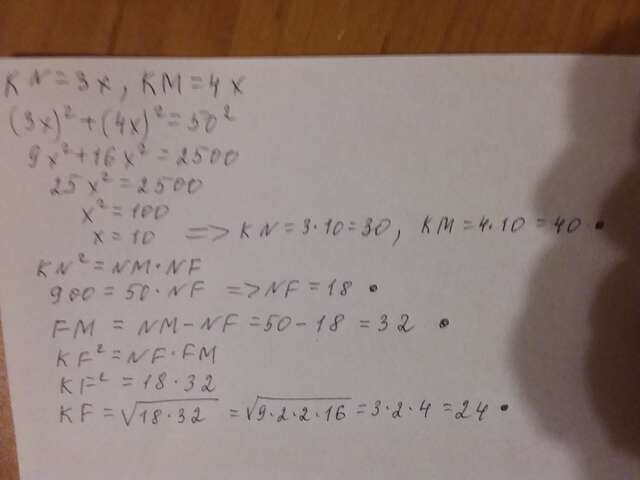 KN=3x, KM=4x
(3x)²+(4x)²=50²
9x²+16x²=2500
25x²=2500
x²=100
x=10 => KN=3·10=30, KM=4·10=40 •
KN²=NM·NF
900=50·NF => NF=18 •
FM=NM-NF=50-18=32 •
KF²=NF·FM
KF²=18·32
KF=√18·32=√9·2·2·16=3·2·4=24 •